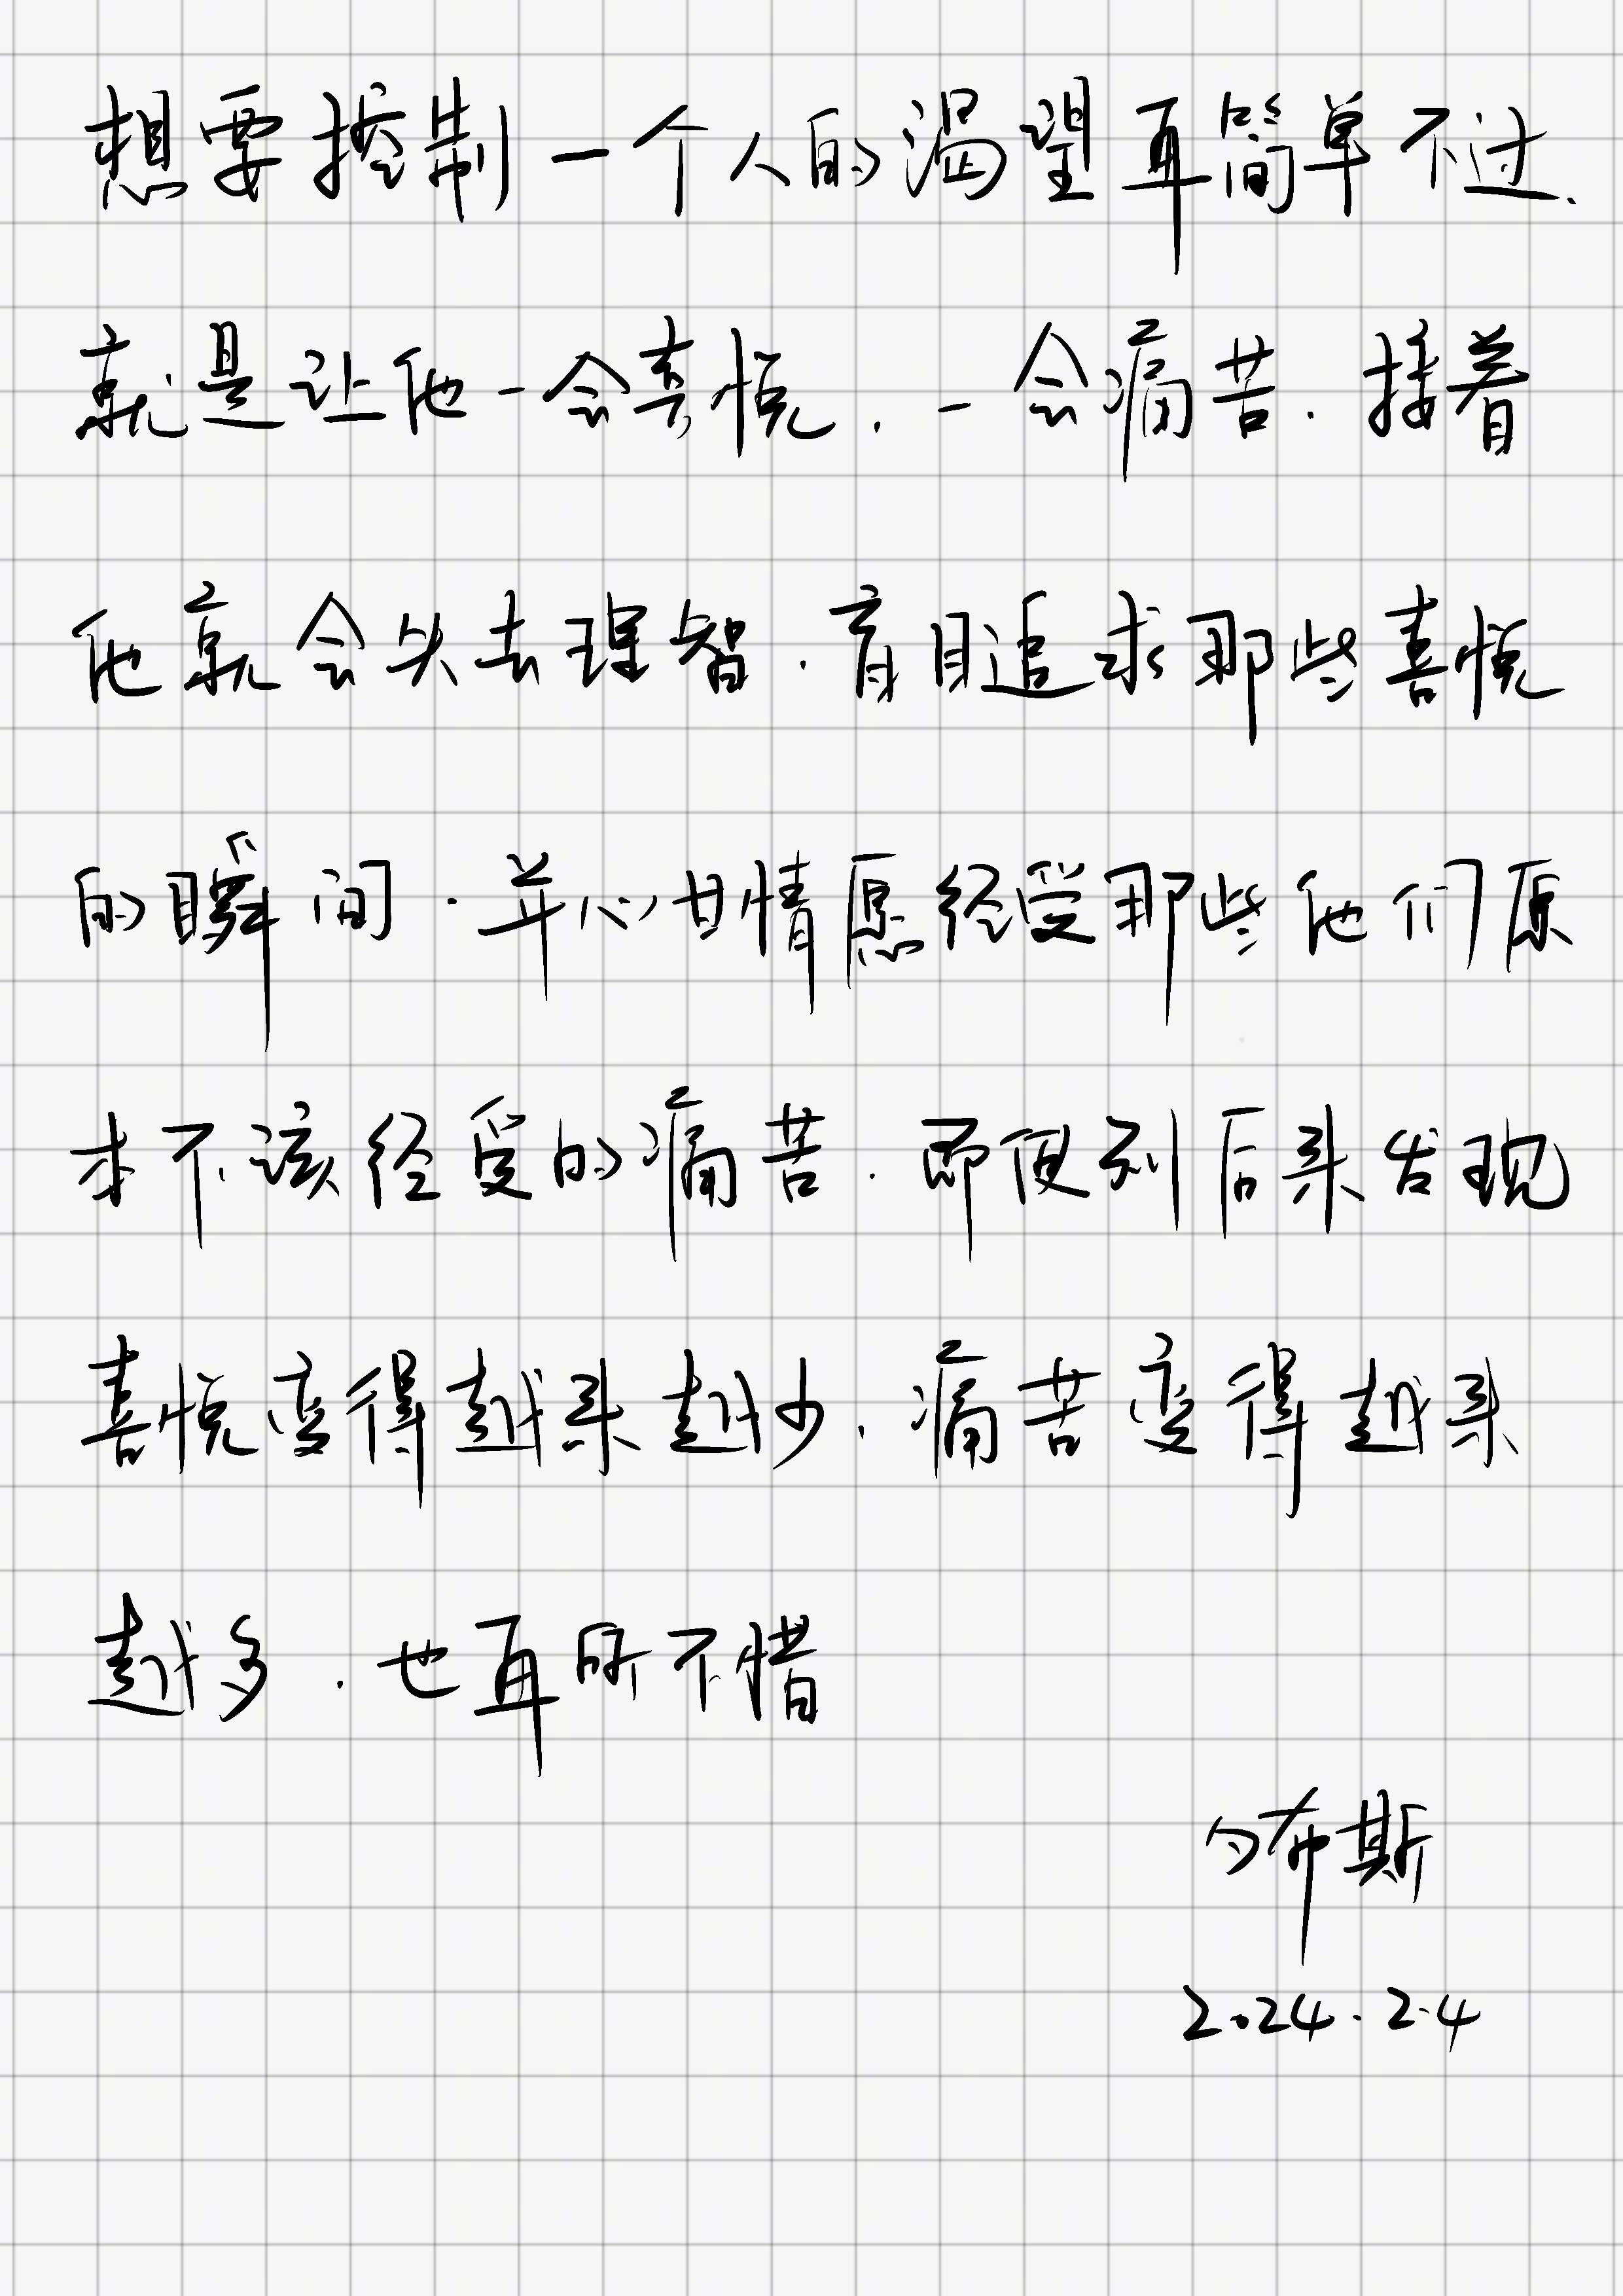 想要控制一个人的渴望再简单不过.
就是让他一会喜悦.一会痛苦.接着
他就会失去理智.盲目追求那些喜悦
的瞬间.并心甘情愿经受那些他们原
本不该经受的痛苦.即便到后来发现
喜悦变得越来越少.痛苦变得越来
越多.也再所不惜
布斯
2024.2.4